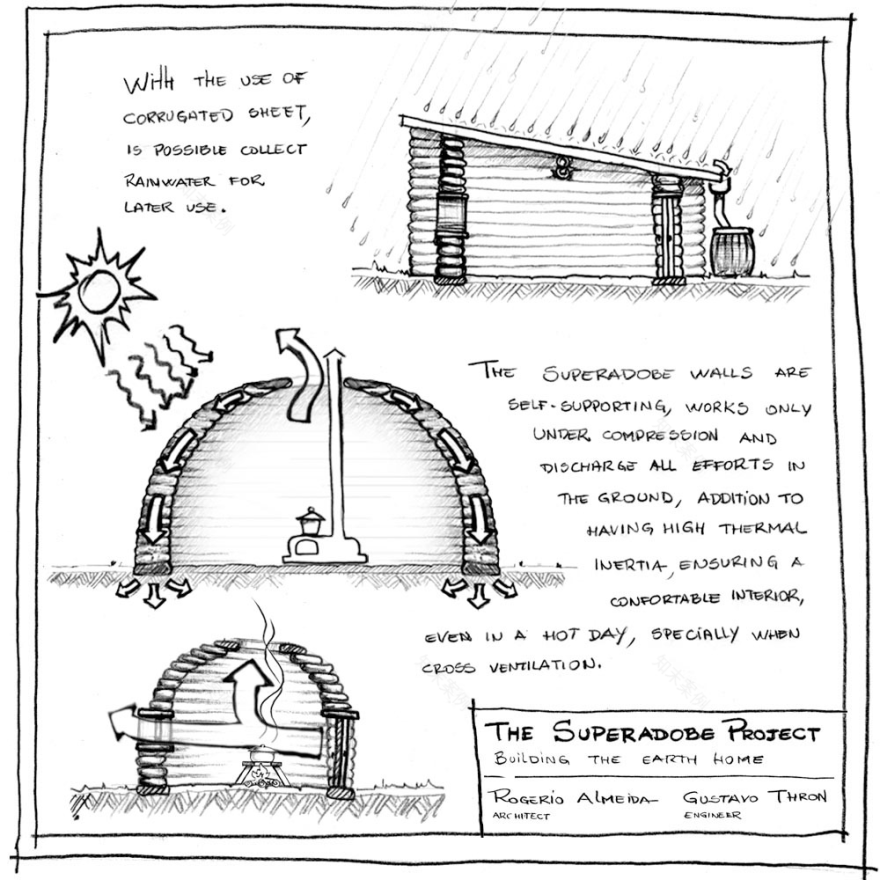 WITH THE USE OF
CORRUGATED SHEET,
IS POSSIBLE COLLECT
RAINWATER FOR
LATER USE.
THE SUPERADOBE WALLS ARE
SELF-SUPPORTING, WORKS ONLY
UNDER COMPRESSION AND
DISCHARGE ALL EFFORTS IN
THE GROUND, ADDITION TO
HAVING HIGH THERMAL
INERTIA, ENSURING A
CONFORTABLE INTERIOR,
EVEN IN A HOT DAY, SPECIALLY WHEN
CROSS VENTILATION.
THE SUPERADOBE PROJECT
BUILDING THE EARTH HOME
ROGERIO ALMEIDA GUSTAVO THRON
ARCHITECT ENGINEER